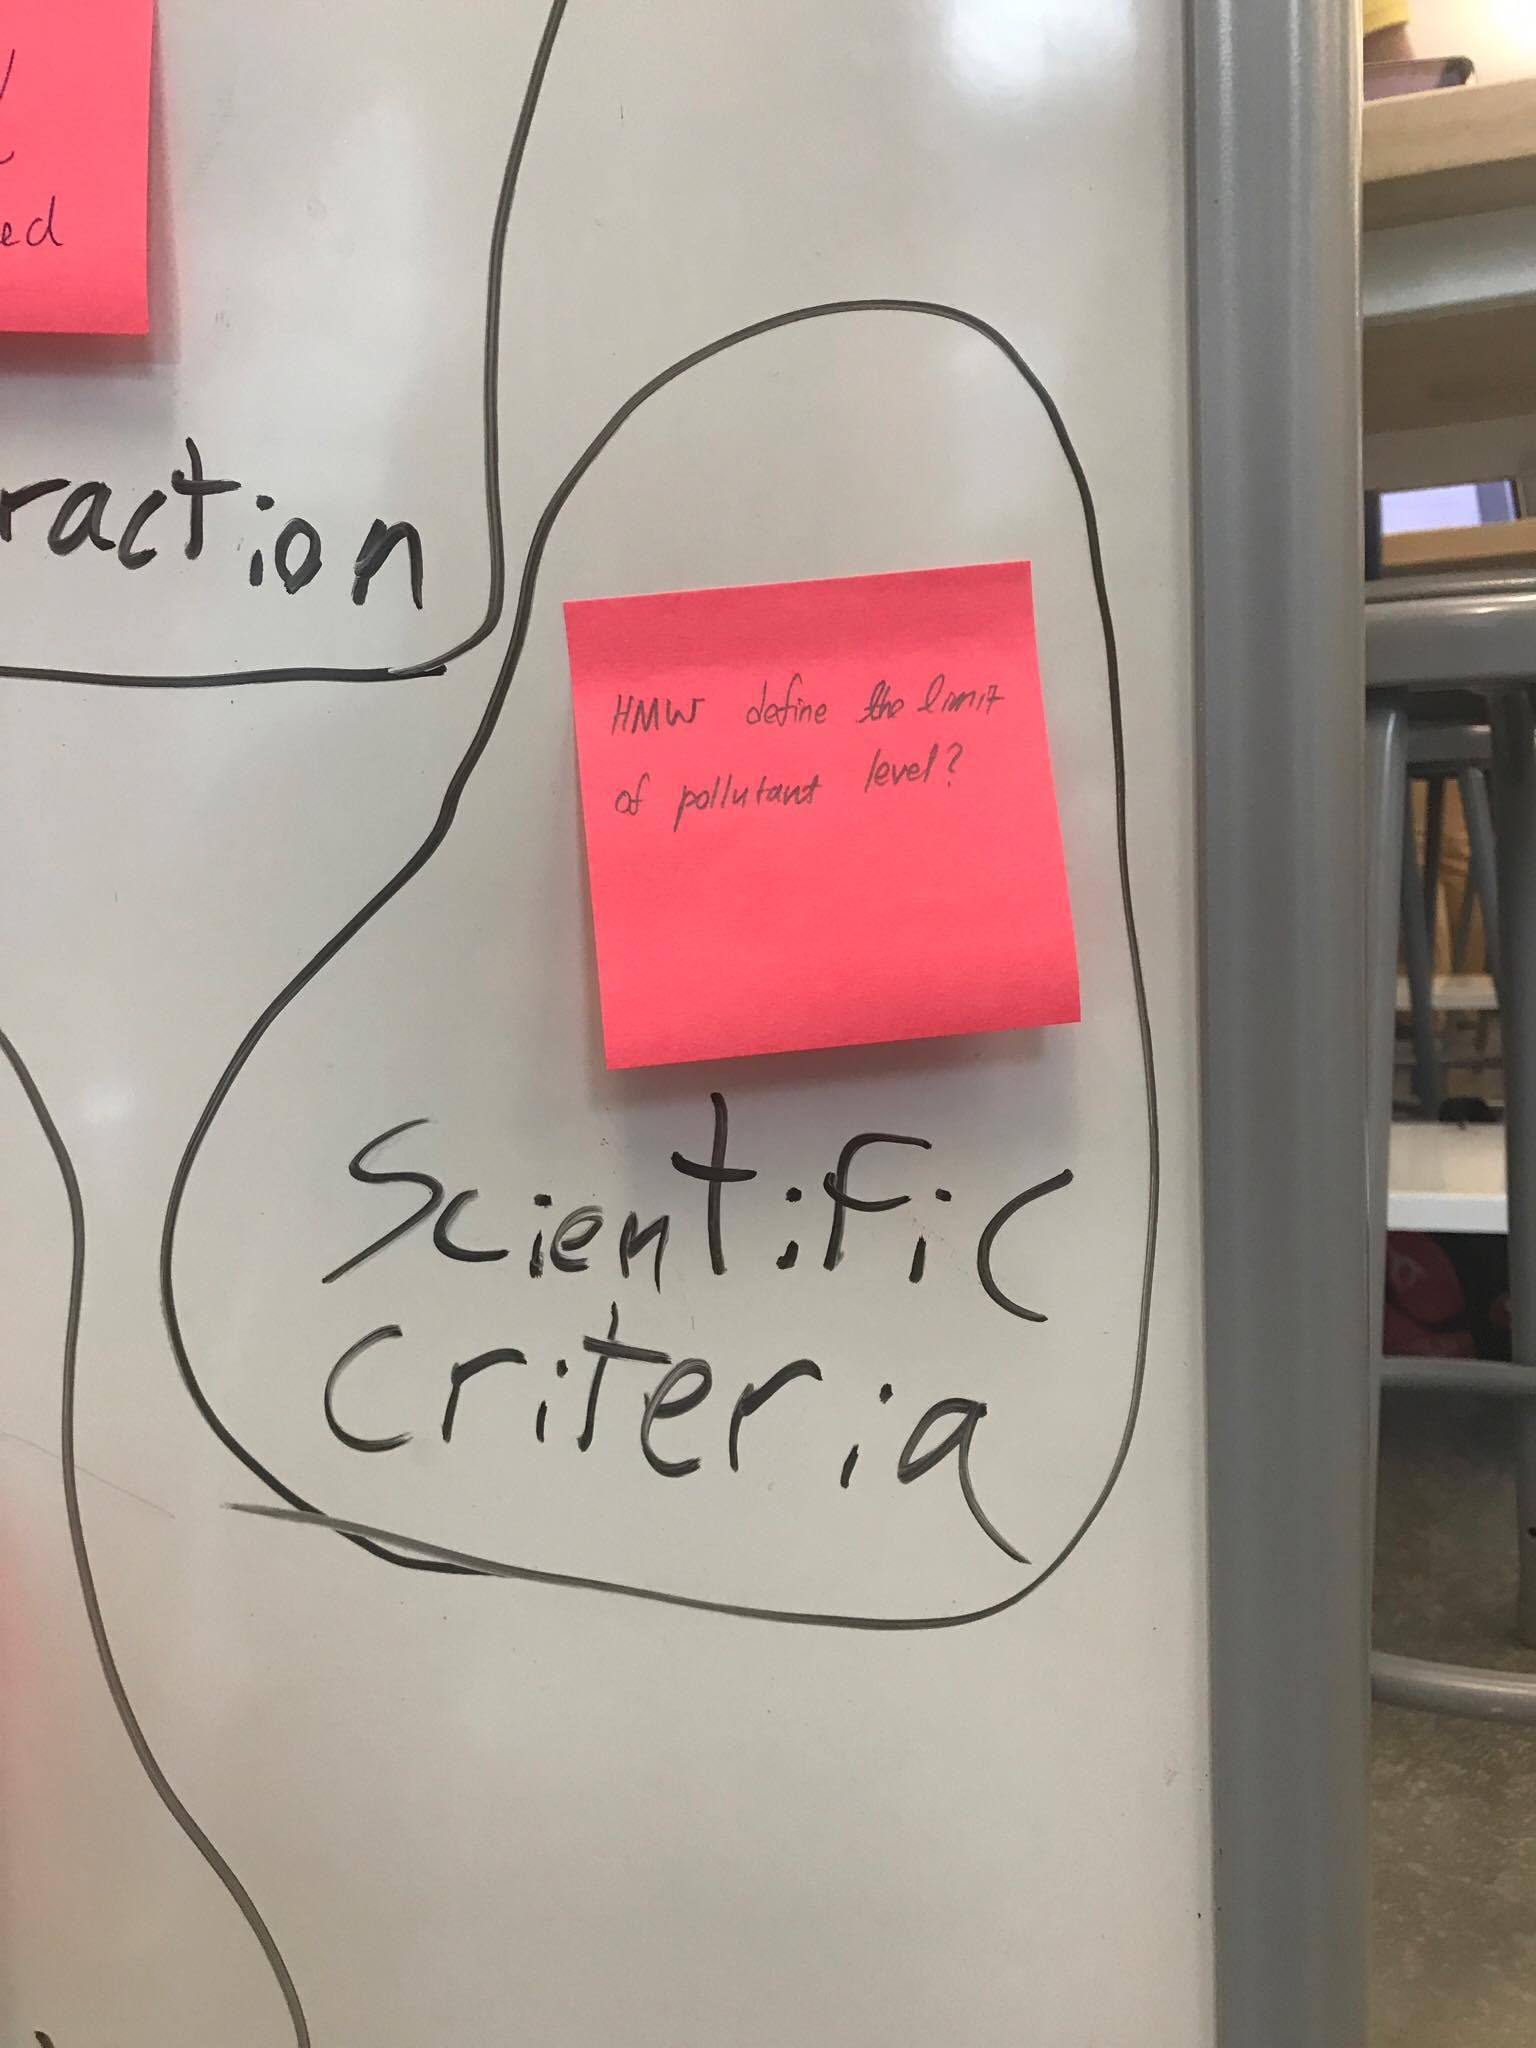 ed
raction
HMW define the limit
of pollutant level?
Scientific
criteria